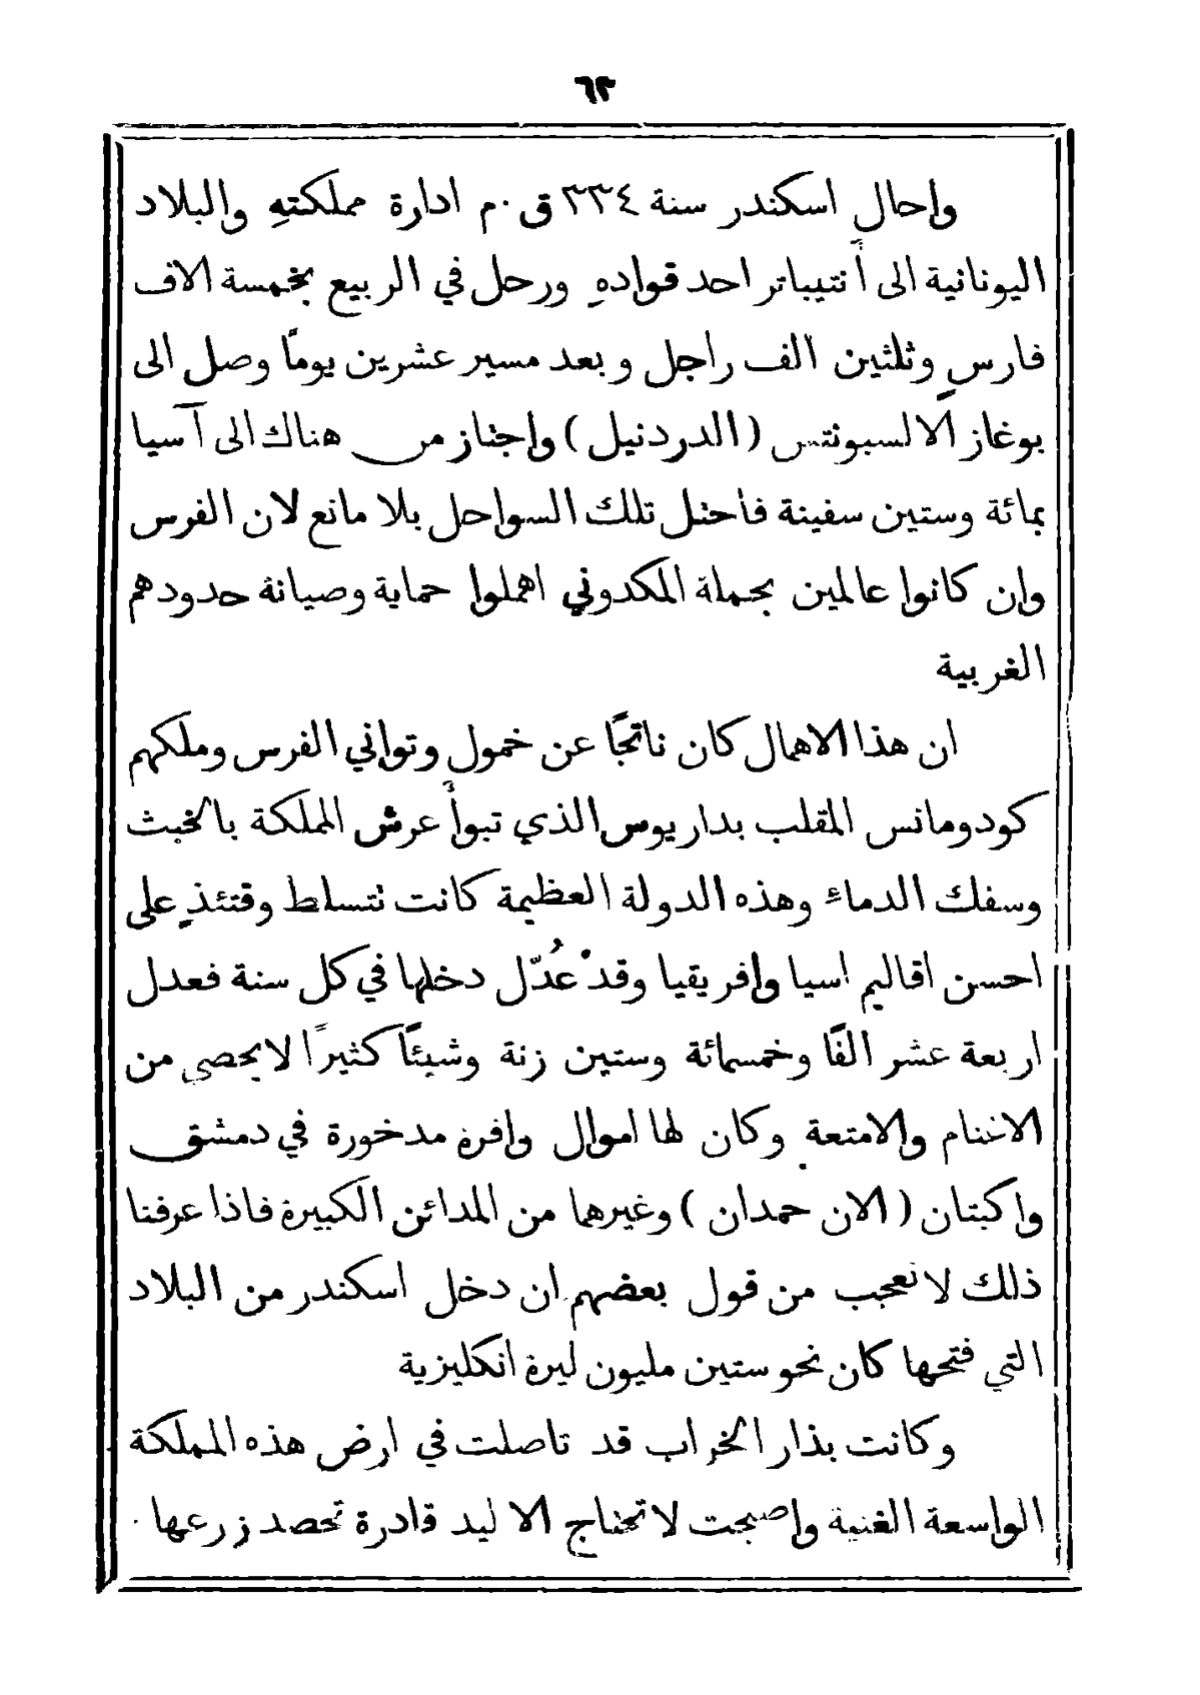 ٦٢
واحال اسكندر سنة ٣٣٤ ق٠م ادارة مملكتهِ والبلاد
اليونانية الى أنتيباتر احد قوادهِ ورحل في الربيع بخمسة الاف
فارسٍ وثلثين الف راجل وبعد مسير عشرين يومًا وصل الى
بوغاز الالسبونتس (الدردنيل) واجتاز من هناك الى آسيا
بمائة وستين سفينة فاحتل تلك السواحل بلا مانع لان الفرس
وان كانوا عالمين بحملة المكدوني اهملوا حماية وصيانة حدودهم
الغربية
ان هذا الاهمال كان ناتجًا عن خمول وتواني الفرس وملكهم
كودومانس المقلب بداريوس الذي تبوأ عرش المملكة بالخبث
وسفك الدماء وهذه الدولة العظيمة كانت نتساط وقتئذٍ على
احسن اقاليم اسيا وافريقيا وقد عُدّل دخلها في كل سنة فعدل
اربعة عشر الفًا وخمسمائة وستين زنة وشيئًا كثيرًا لا يحصى من
الاغنام والامتعة وكان لها اموال وافرة مدخورة في دمشق
واكبتان (الان حمدان) وغيرهما من المدائن الكبيرة فاذا عرفنا
ذلك لا نعجب من قول بعضهم ان دخل اسكندر من البلاد
التي فتحها كان نحو ستين مليون ليرة انكليزية
وكانت بذار الخراب قد تاصلت في ارض هذه المملكة
الواسعة الغنية واصبحت لا تحتاج الا ليد قادرة تحصد زرعها